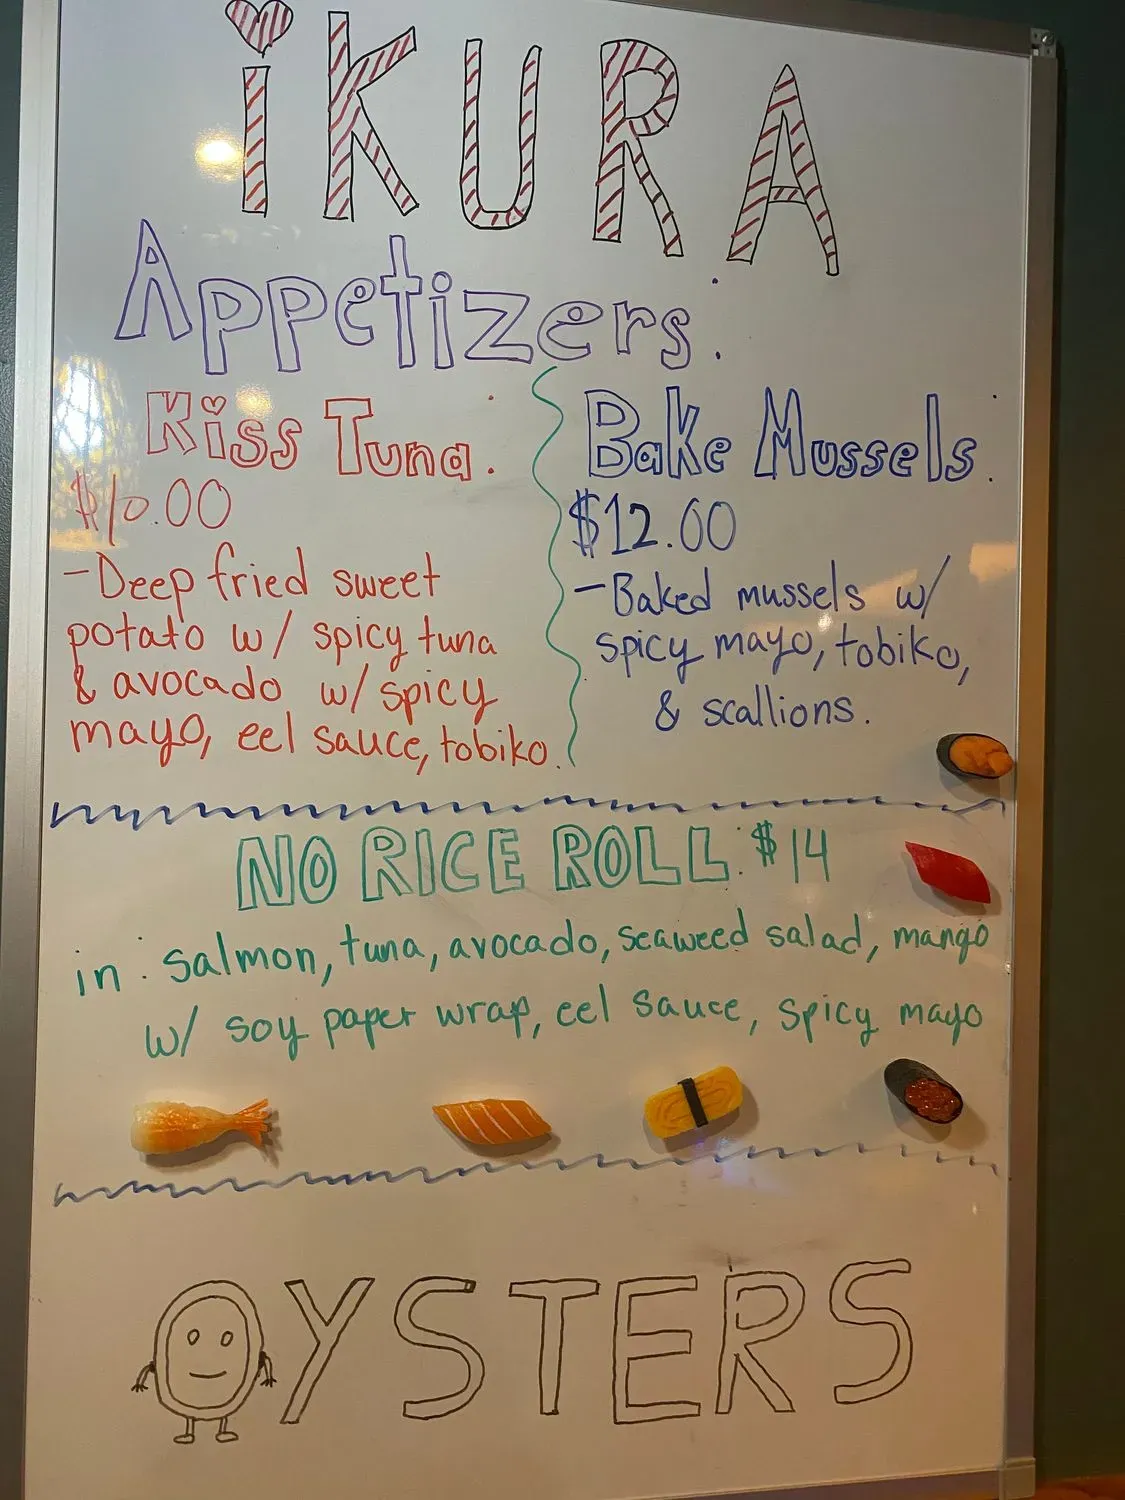 iKURA
Appetizers:
Kiss Tuna:
$10.00
-Deep fried sweet
potato w/ spicy tuna
& avocado w/ spicy
mayo, eel sauce, tobiko.
Bake Mussels:
$12.00
-Baked mussels w/
spicy mayo, tobiko,
& scallions.
NO RICE ROLL: $14
in: salmon, tuna, avocado, seaweed salad, mango
w/ soy paper wrap, eel sauce, spicy mayo
OYSTERS